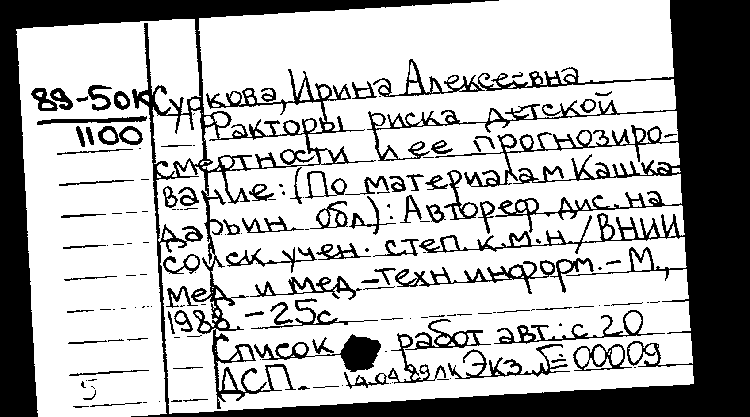 89-50к
1100
Суркова, Ирина Алексеевна.
Факторы риска детской
смертности и ее прогнозиро-
вание: (По материалам Кашка-
дарьин. обл.): Автореф. дис. на
соиск. учен. степ. к.м.н. / ВНИИ
мед. и мед.-техн. информ. - М.,
1988. - 25с.
Список работ авт.: с. 20
ДСП. 14.04.89 лк Экз. № 00009
5